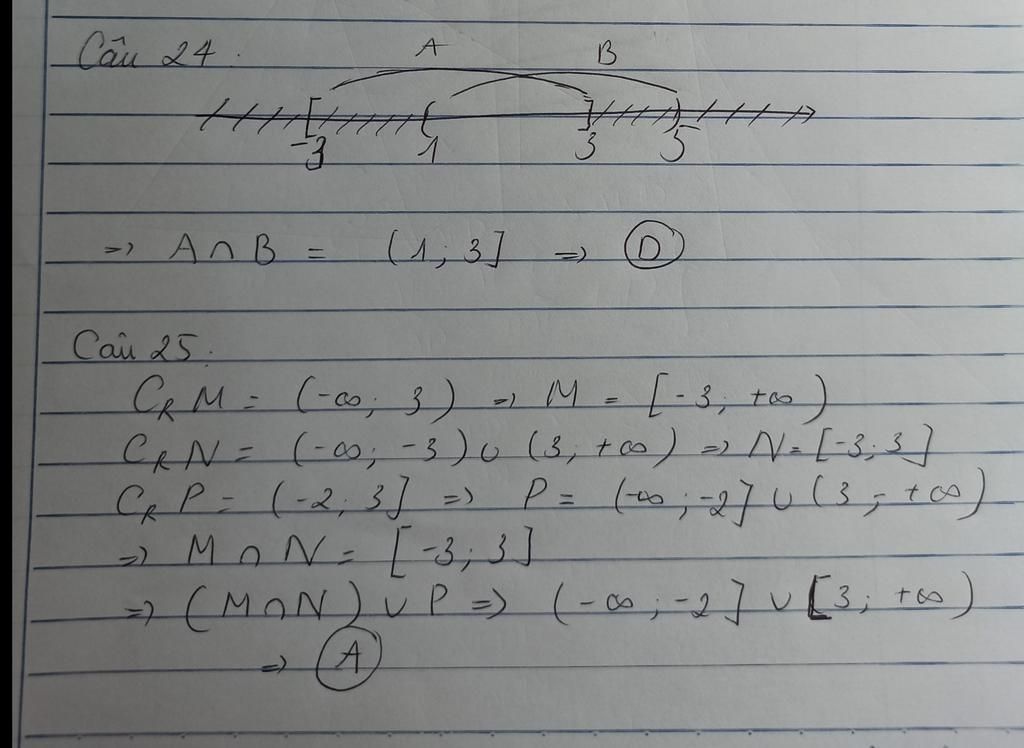 Câu 24.
A B
-3 1 3 5
=> A ∩ B = (1; 3] => D
Câu 25.
C_R M = (-∞; 3) => M = [-3; +∞)
C_R N = (-∞; -3) ∪ (3; +∞) => N = [-3; 3]
C_R P = (-2; 3] => P = (-∞; -2] ∪ (3; +∞)
=> M ∩ N = [-3; 3]
=> (M ∩ N) ∪ P => (-∞; -2] ∪ [3; +∞)
=> A